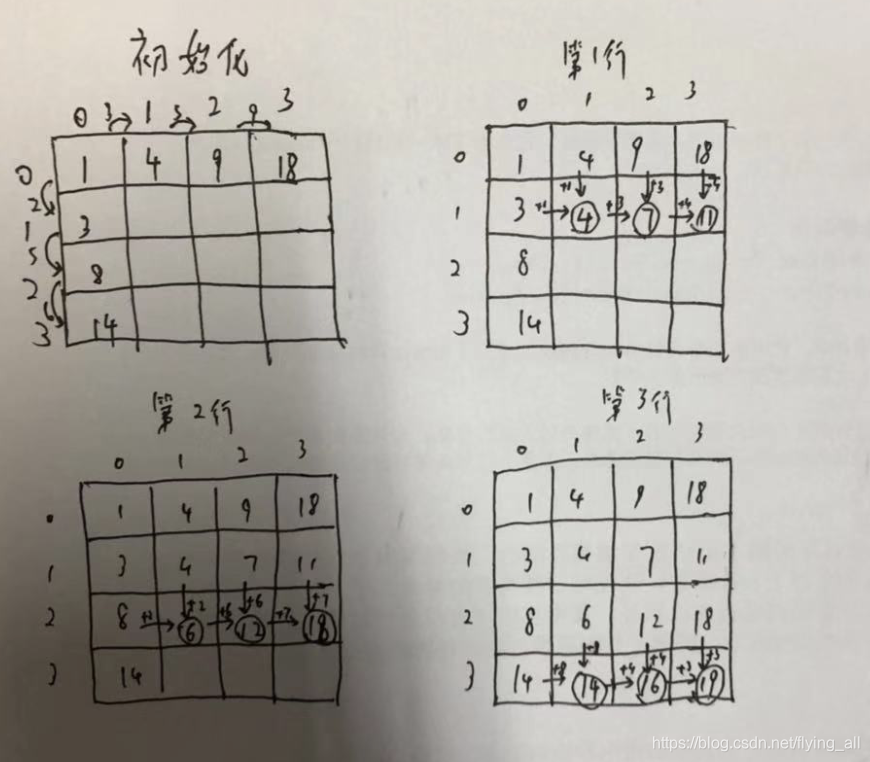 初始化
0 3 1 5 2 9 3
0 1 4 9 18
2
1 3
5
2 8
6
3 14
第1行
0 1 2 3
0 1 4 9 18
+1 +3 +4
1 3 +1 4 +3 7 +4 11
2 8
3 14
第2行
0 1 2 3
0 1 4 9 18
1 3 4 7 11
+2 +6 +7
2 8 +2 6 +6 12 +7 18
3 14
第3行
0 1 2 3
0 1 4 9 18
1 3 4 7 11
2 8 6 12 18
+8 +4 +3
3 14 +8 14 +4 16 +3 19
https://blog.csdn.net/flying_all